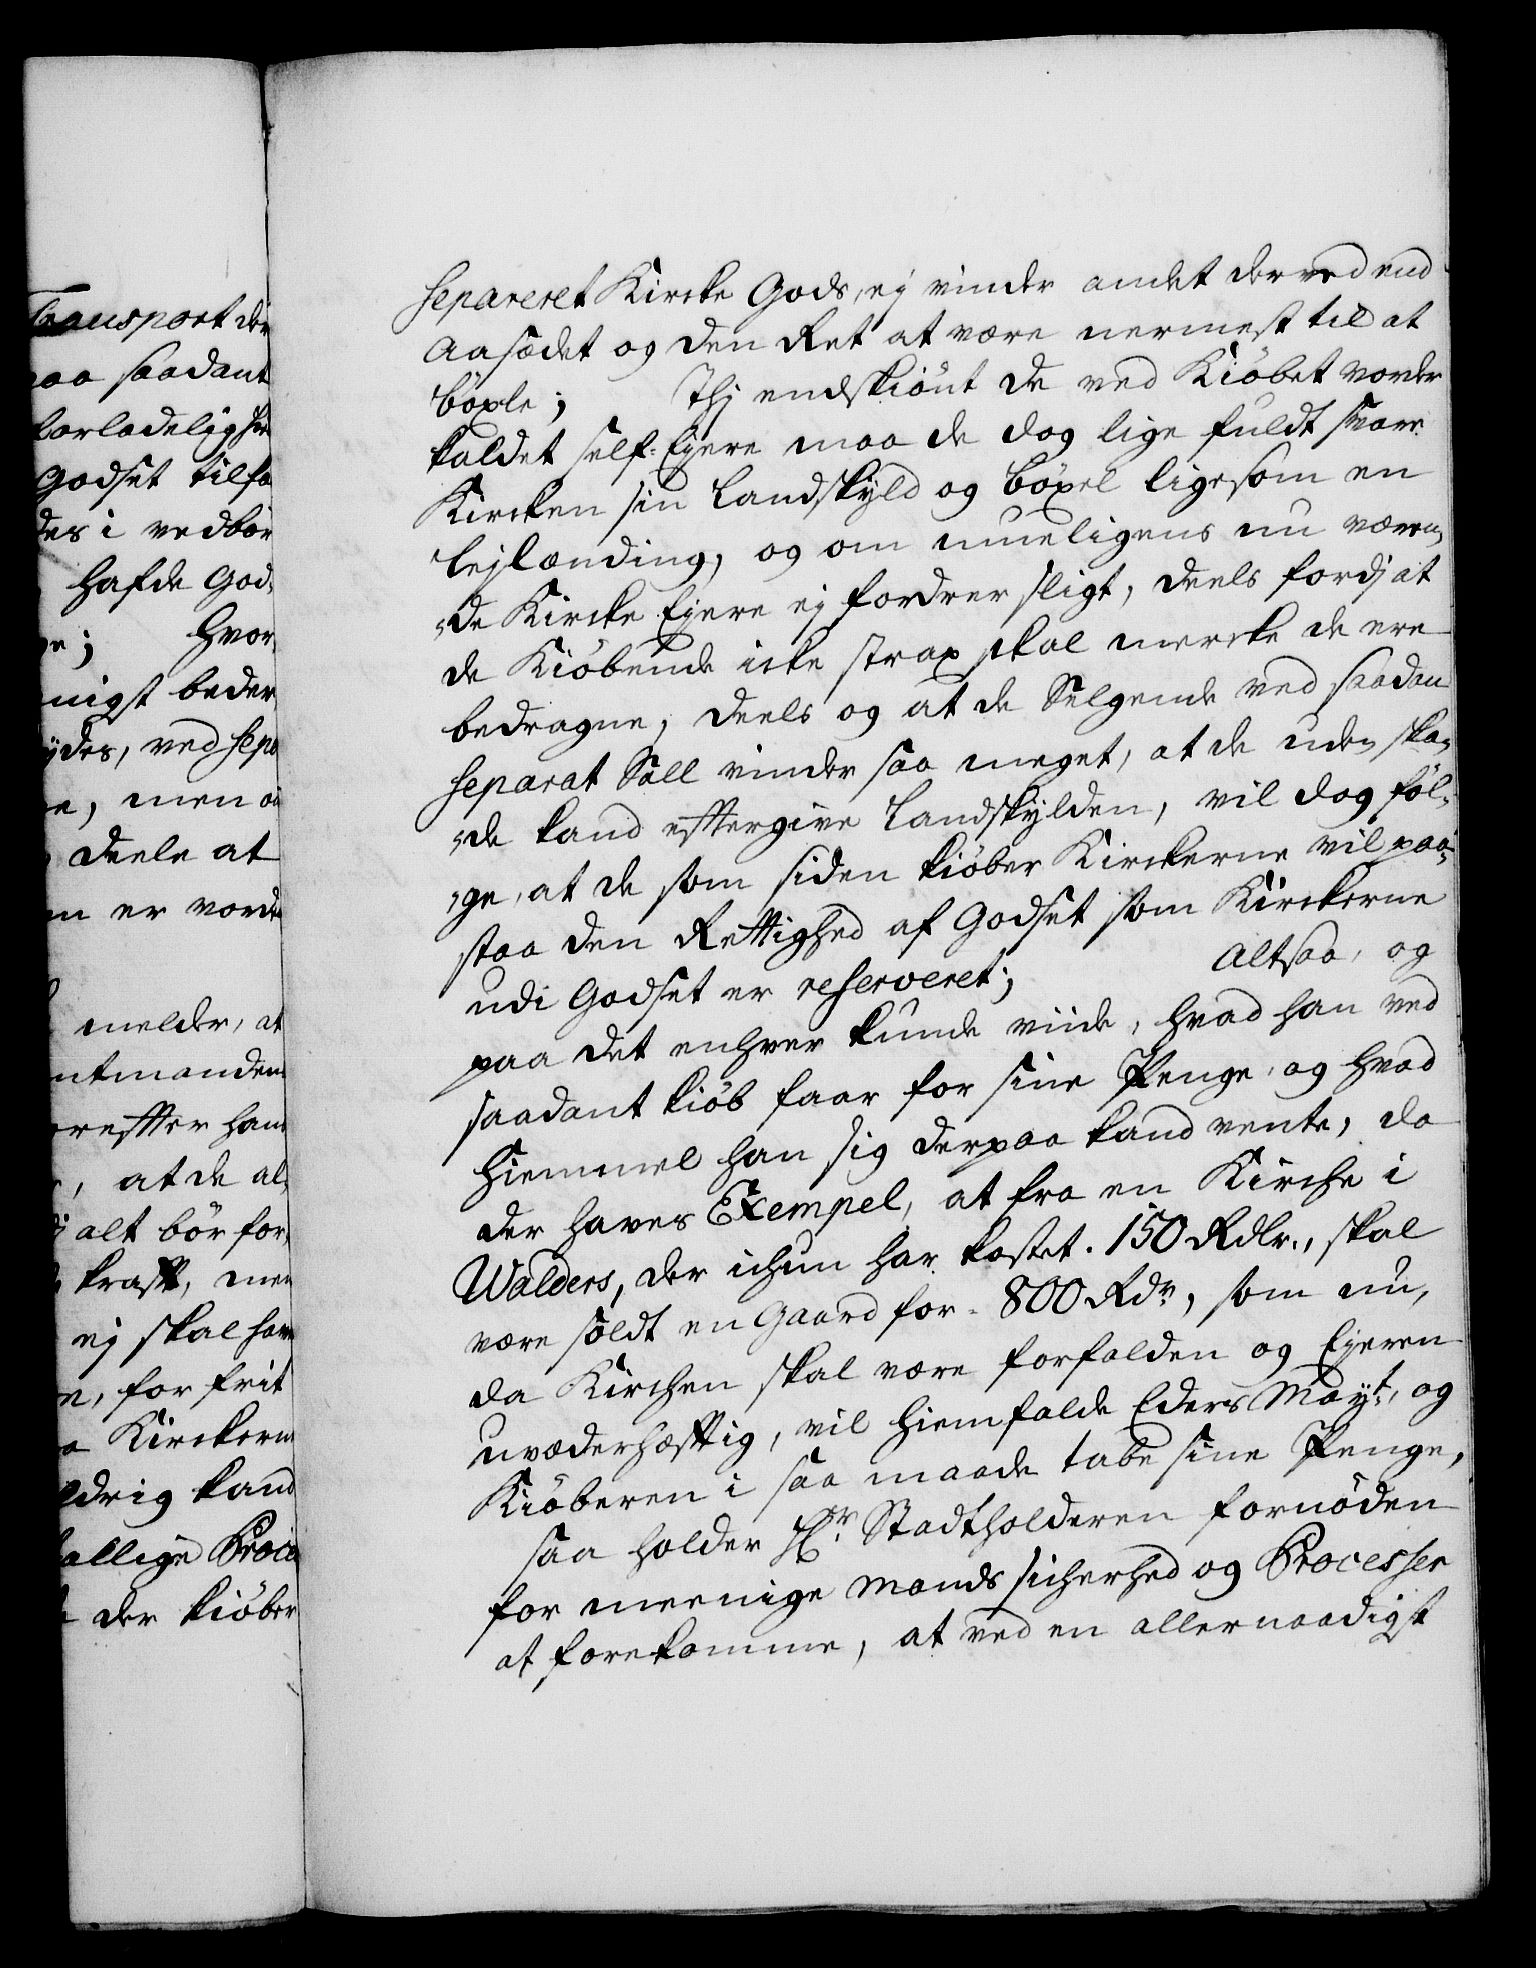 Transport der
paa saadant
forladelighe
Godset tilfa
des i vedbør
hafde God,
e; hvor,
nigst beder
ydes, ved sepa
e, men o
deele at
en er vorde
melder, at
ntmanden
refter han
, at de al,
alt bör for,
krafft, men
ej skal hav
e, for frit
Kirckern
ldrig kand
fallige Proce
der kiöber
separeret Kircke Gods, ej vinder andet derved end
Aasædet og den Ret at være nermest til at
böxle; Thj endskiönt de ved Kiöbet vorder
kaldet self-Ejere maa de dog lige fuldt svare
Kircken sin Landskyld og böxel ligesom en
lejlænding, og om mueligens nu væren,
,de Kircke Ejere ej fordrer sligt, deels fordj at
de Kiöbende icke strax skal mercke de ere
bedragne, deels og at de Selgende ved saadan
separat Sall vinder saa meget, at de uden ska,
,de kand eftergive Landskylden, vil dog föl,
,ge, at de som siden kiöber Kirckerne vil paa,
staa den Rettighed af Godset som Kirckerne
udi Godset er reserveret; Altsaa, og
paa det enhver kunde viide, hvad han ved
saadant kiöb faar for sine Penge, og hvad
Hiemmel han sig derpaa kand vente, da
der haves Exempel, at fra en Kirche i
Walders, der ichun har kostet. 150 Rdlr., skal
være soldt en Gaard for. 800 Rdr, som nu,
da Kirchen skal være forfalden og Ejeren
uvederhæfftig, vil hiemfalde Eders Mayt, og
Kiöberen i saa maade tabe sine Penge,
saa holder Hr Stadtholderen fornöden
for meenige Mands sicherhed og Processer
at forekomme, at ved en allernaadigst